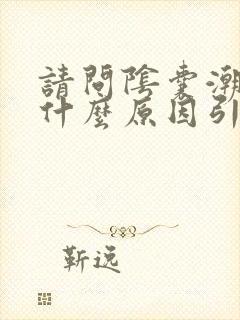 請問陰囊潮
什麼原因引
靳远